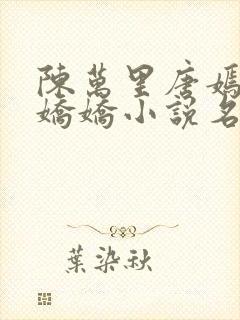 陳萬里唐嫣
嬌嬌小說名
葉染秋